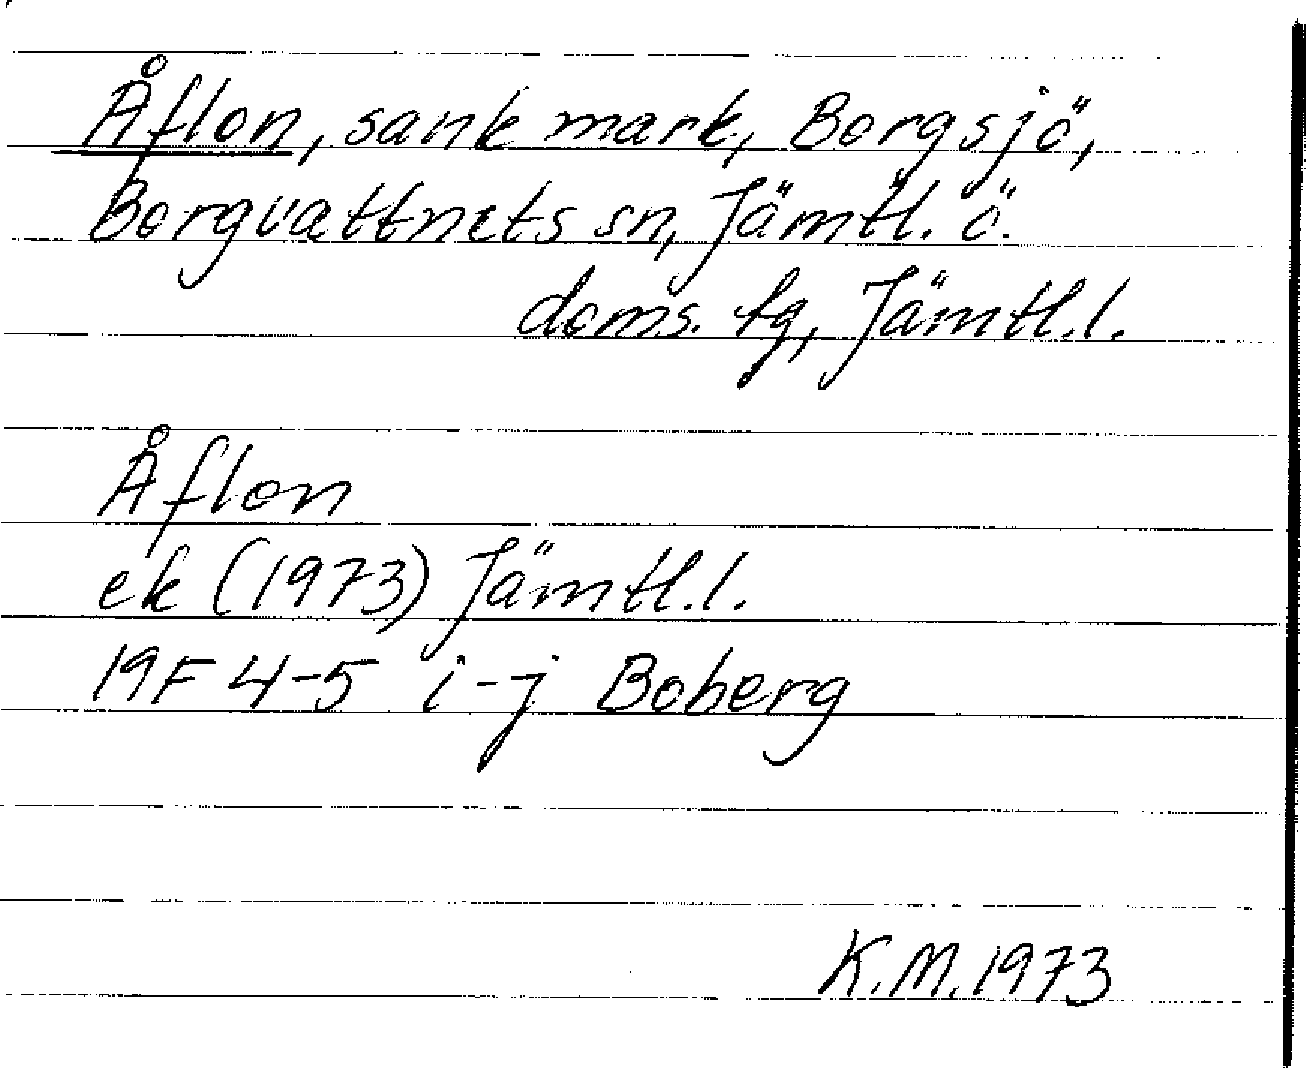 Åflon, sank mark, Borgsjö,
Borgvattnets sn, Jämtl. ö.
doms. tg, Jämtl.l.
Åflon
ek (1973) Jämtl.l.
19F 4-5 i-j Boberg
K.M. 1973